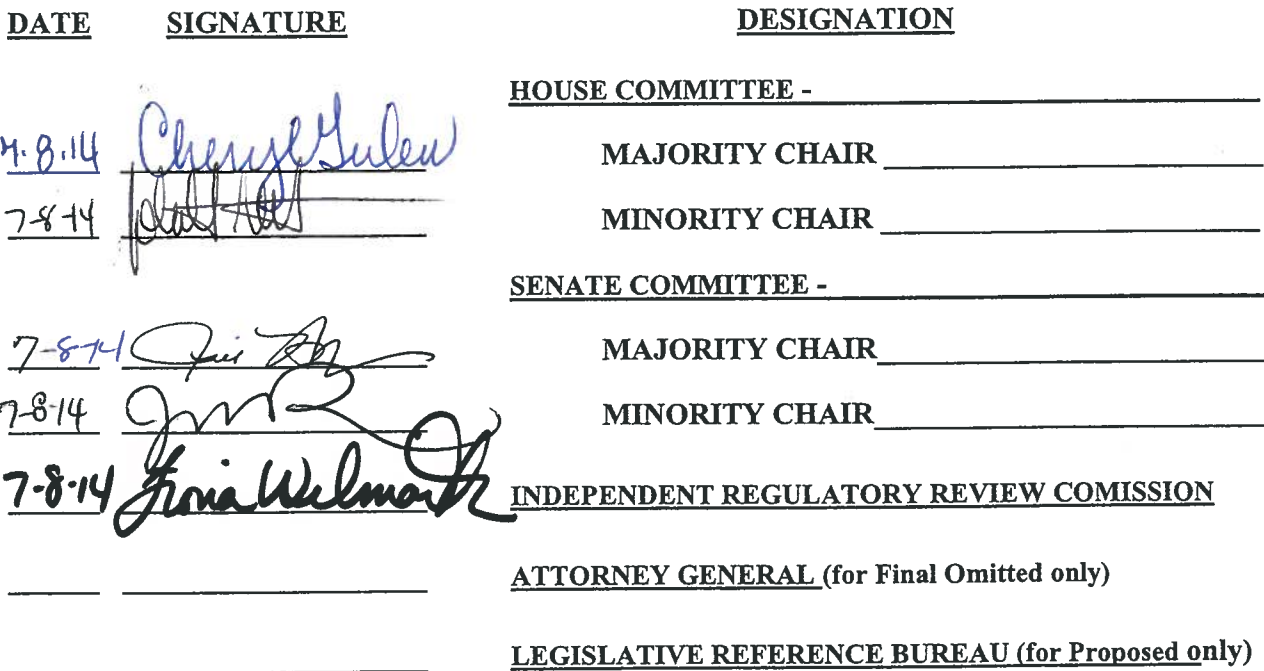 DATE SIGNATURE DESIGNATION
HOUSE COMMITTEE -
7.8.14 Cheryl Gulew MAJORITY CHAIR
7-8-14 MINORITY CHAIR
SENATE COMMITTEE -
7-8-14 MAJORITY CHAIR
7-8-14 MINORITY CHAIR
7-8-14 Fiona Wilmarth INDEPENDENT REGULATORY REVIEW COMISSION
ATTORNEY GENERAL (for Final Omitted only)
LEGISLATIVE REFERENCE BUREAU (for Proposed only)